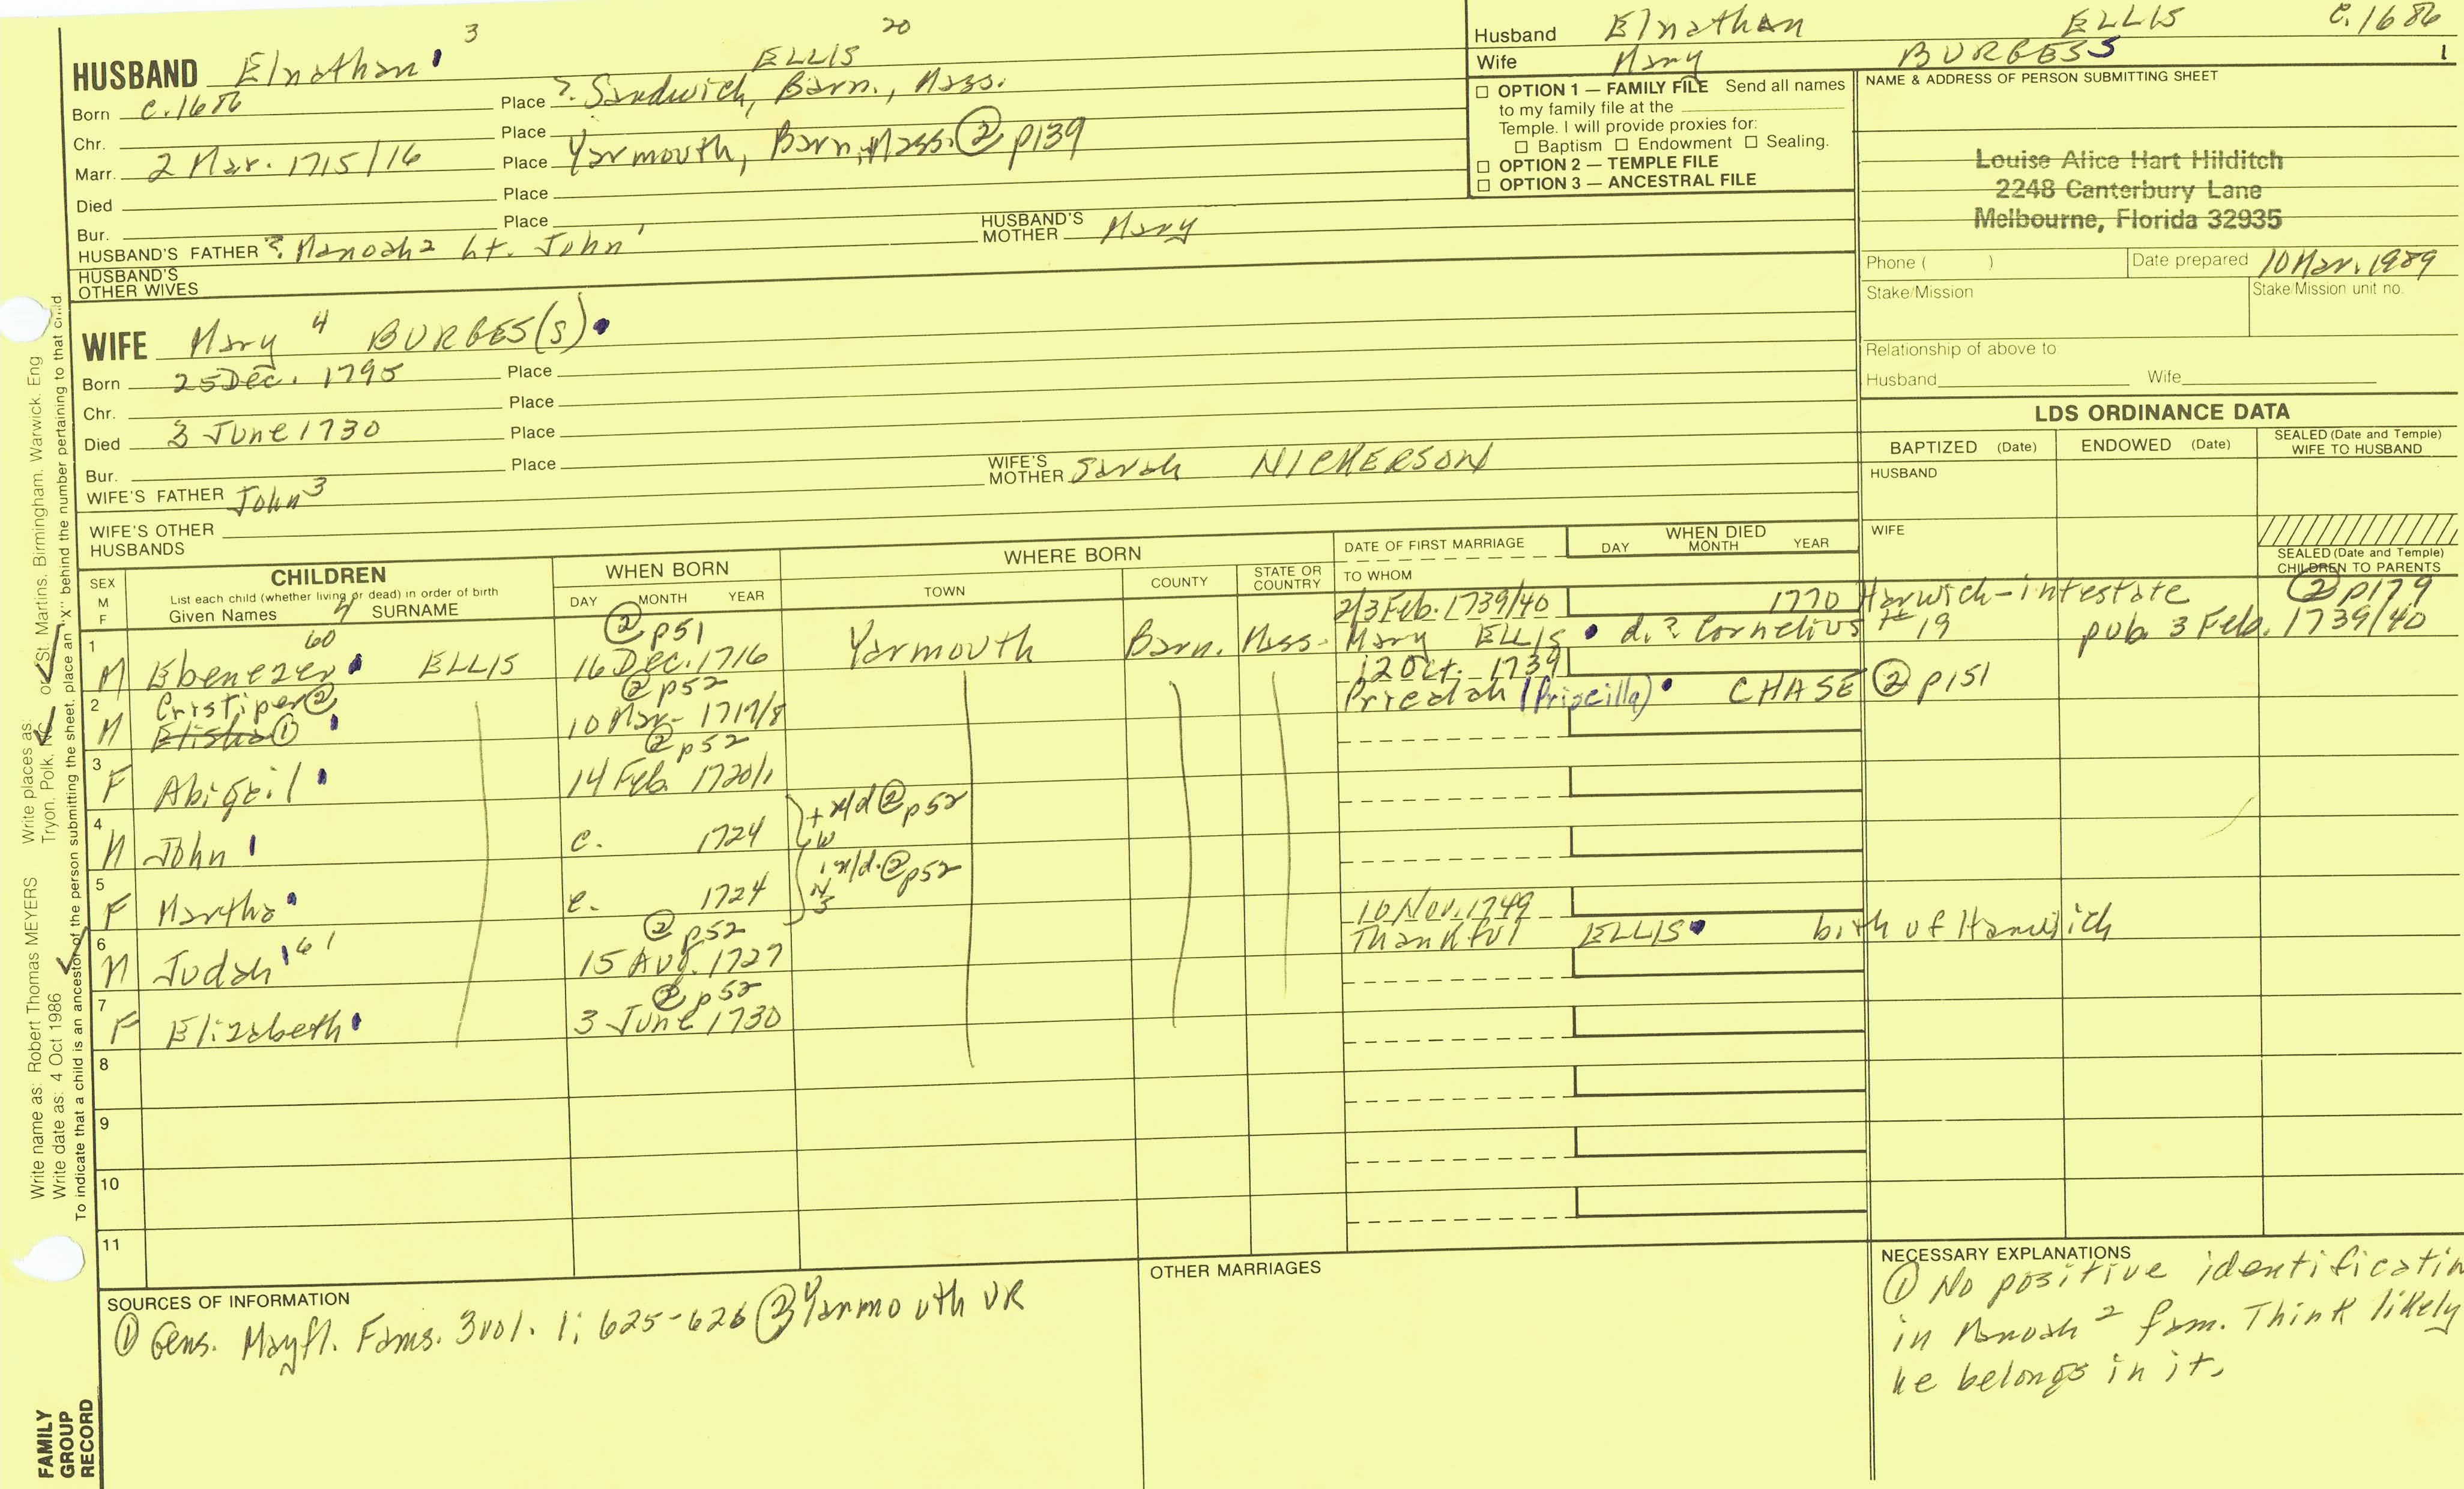 3 20
HUSBAND Elnathan ELLIS
Born c.1686 Place ?. Sandwich, Barn., Mass.
Chr. Place
Marr. 2 Mar. 1715/16 Place Yarmouth, Barn, Mass. ② p139
Died Place
Bur. Place
HUSBAND'S FATHER ?. Manoah 2 Lt. John 1 HUSBAND'S MOTHER Mary
HUSBAND'S OTHER WIVES
WIFE Mary 4 BURGES(S)
Born 25 Dec. 1795 Place
Chr. Place
Died 3 June 1730 Place
Bur. Place
WIFE'S FATHER John 3 WIFE'S MOTHER Sarah NICKERSON
WIFE'S OTHER HUSBANDS
Husband Elnathan ELLIS c.1686
Wife Mary BURGESS 1
☐ OPTION 1 — FAMILY FILE Send all names
to my family file at the
Temple. I will provide proxies for:
☐ Baptism ☐ Endowment ☐ Sealing.
☐ OPTION 2 — TEMPLE FILE
☐ OPTION 3 — ANCESTRAL FILE
NAME & ADDRESS OF PERSON SUBMITTING SHEET
Louise Alice Hart Hilditch
2248 Canterbury Lane
Melbourne, Florida 32935
Phone ( ) Date prepared 10 Mar. 1989
Stake/Mission Stake/Mission unit no.
Relationship of above to
Husband Wife
LDS ORDINANCE DATA
BAPTIZED (Date) ENDOWED (Date) SEALED (Date and Temple) WIFE TO HUSBAND
HUSBAND
WIFE
SEALED (Date and Temple) CHILDREN TO PARENTS
SEX M F CHILDREN WHEN BORN WHERE BORN DATE OF FIRST MARRIAGE WHEN DIED
List each child (whether living or dead) in order of birth
Given Names 4 SURNAME DAY MONTH YEAR TOWN COUNTY STATE OR COUNTRY TO WHOM DAY MONTH YEAR
60 ② p51 2/3 Feb. 1739/40 1770 Harwich-intestate ② p179
1 M Ebenezer ELLIS 16 Dec. 1716 Yarmouth Barn. Mass. Mary ELLIS d. ? Cornelius 19 pub. 3 Feb. 1739/40
Cristiper ② ② p52 12 Oct. 1739
2 M Elisha ① 10 Mar. 1717/8 Priedah (Priscilla) CHASE ② p151
② p52
3 F Abigail 14 Feb. 1720/1
4 M John c. 1724 ② p52
5 F Martha c. 1724 ② p52
② p52 10 Nov. 1749
6 M Judah 61 15 Aug. 1727 Thankful ELLIS both of Harwich
② p52
7 F Elizabeth 3 June 1730
8
9
10
11
SOURCES OF INFORMATION
① Gens. Mayfl. Fams. 3 vol. 1; 625-626 ② Yarmouth VR
OTHER MARRIAGES
NECESSARY EXPLANATIONS
① No positive identificatin
in Manoah 2 fam. Think likely
he belongs in it.
Write name as: Robert Thomas MEYERS Write places as: Tryon, Polk, NC or St. Martins, Birmingham, Warwick, Eng
Write date as: 4 Oct 1986
To indicate that a child is an ancestor of the person submitting the sheet, place an "X" behind the number pertaining to that child
FAMILY GROUP RECORD